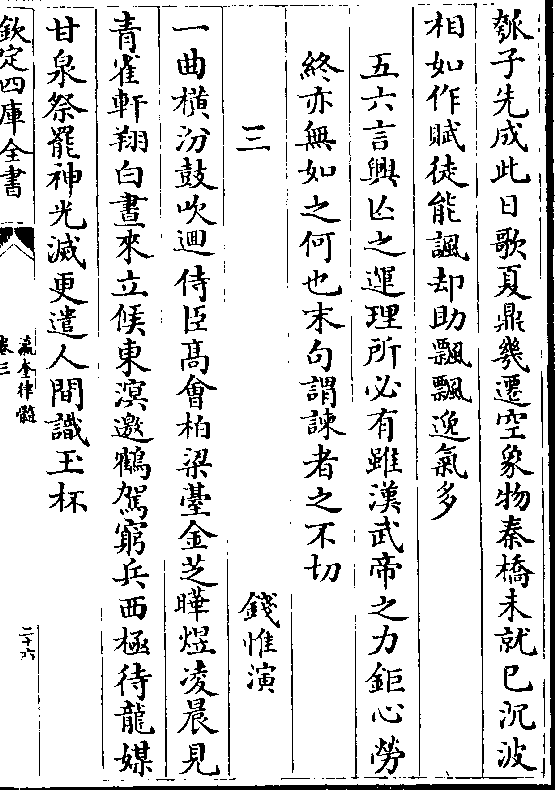 瓠子先成此日歌夏鼎幾遷空象物秦橋未就已沉波
相如作賦徒能諷却助飄飄逸氣多
五六言興亾之運理所必有雖漢武帝之力鉅心勞
終亦無如之何也末句謂諫者之不切
三
錢惟演
一曲横汾鼓吹迴侍臣髙會柏梁臺金芝曄煜凌晨見
青雀軒翔白晝來立候東溟邀鶴駕窮兵西極待龍媒
甘泉祭罷神光滅更遣人間識玉杯
欽定四庫全書
瀛奎律髓
卷三
二十六